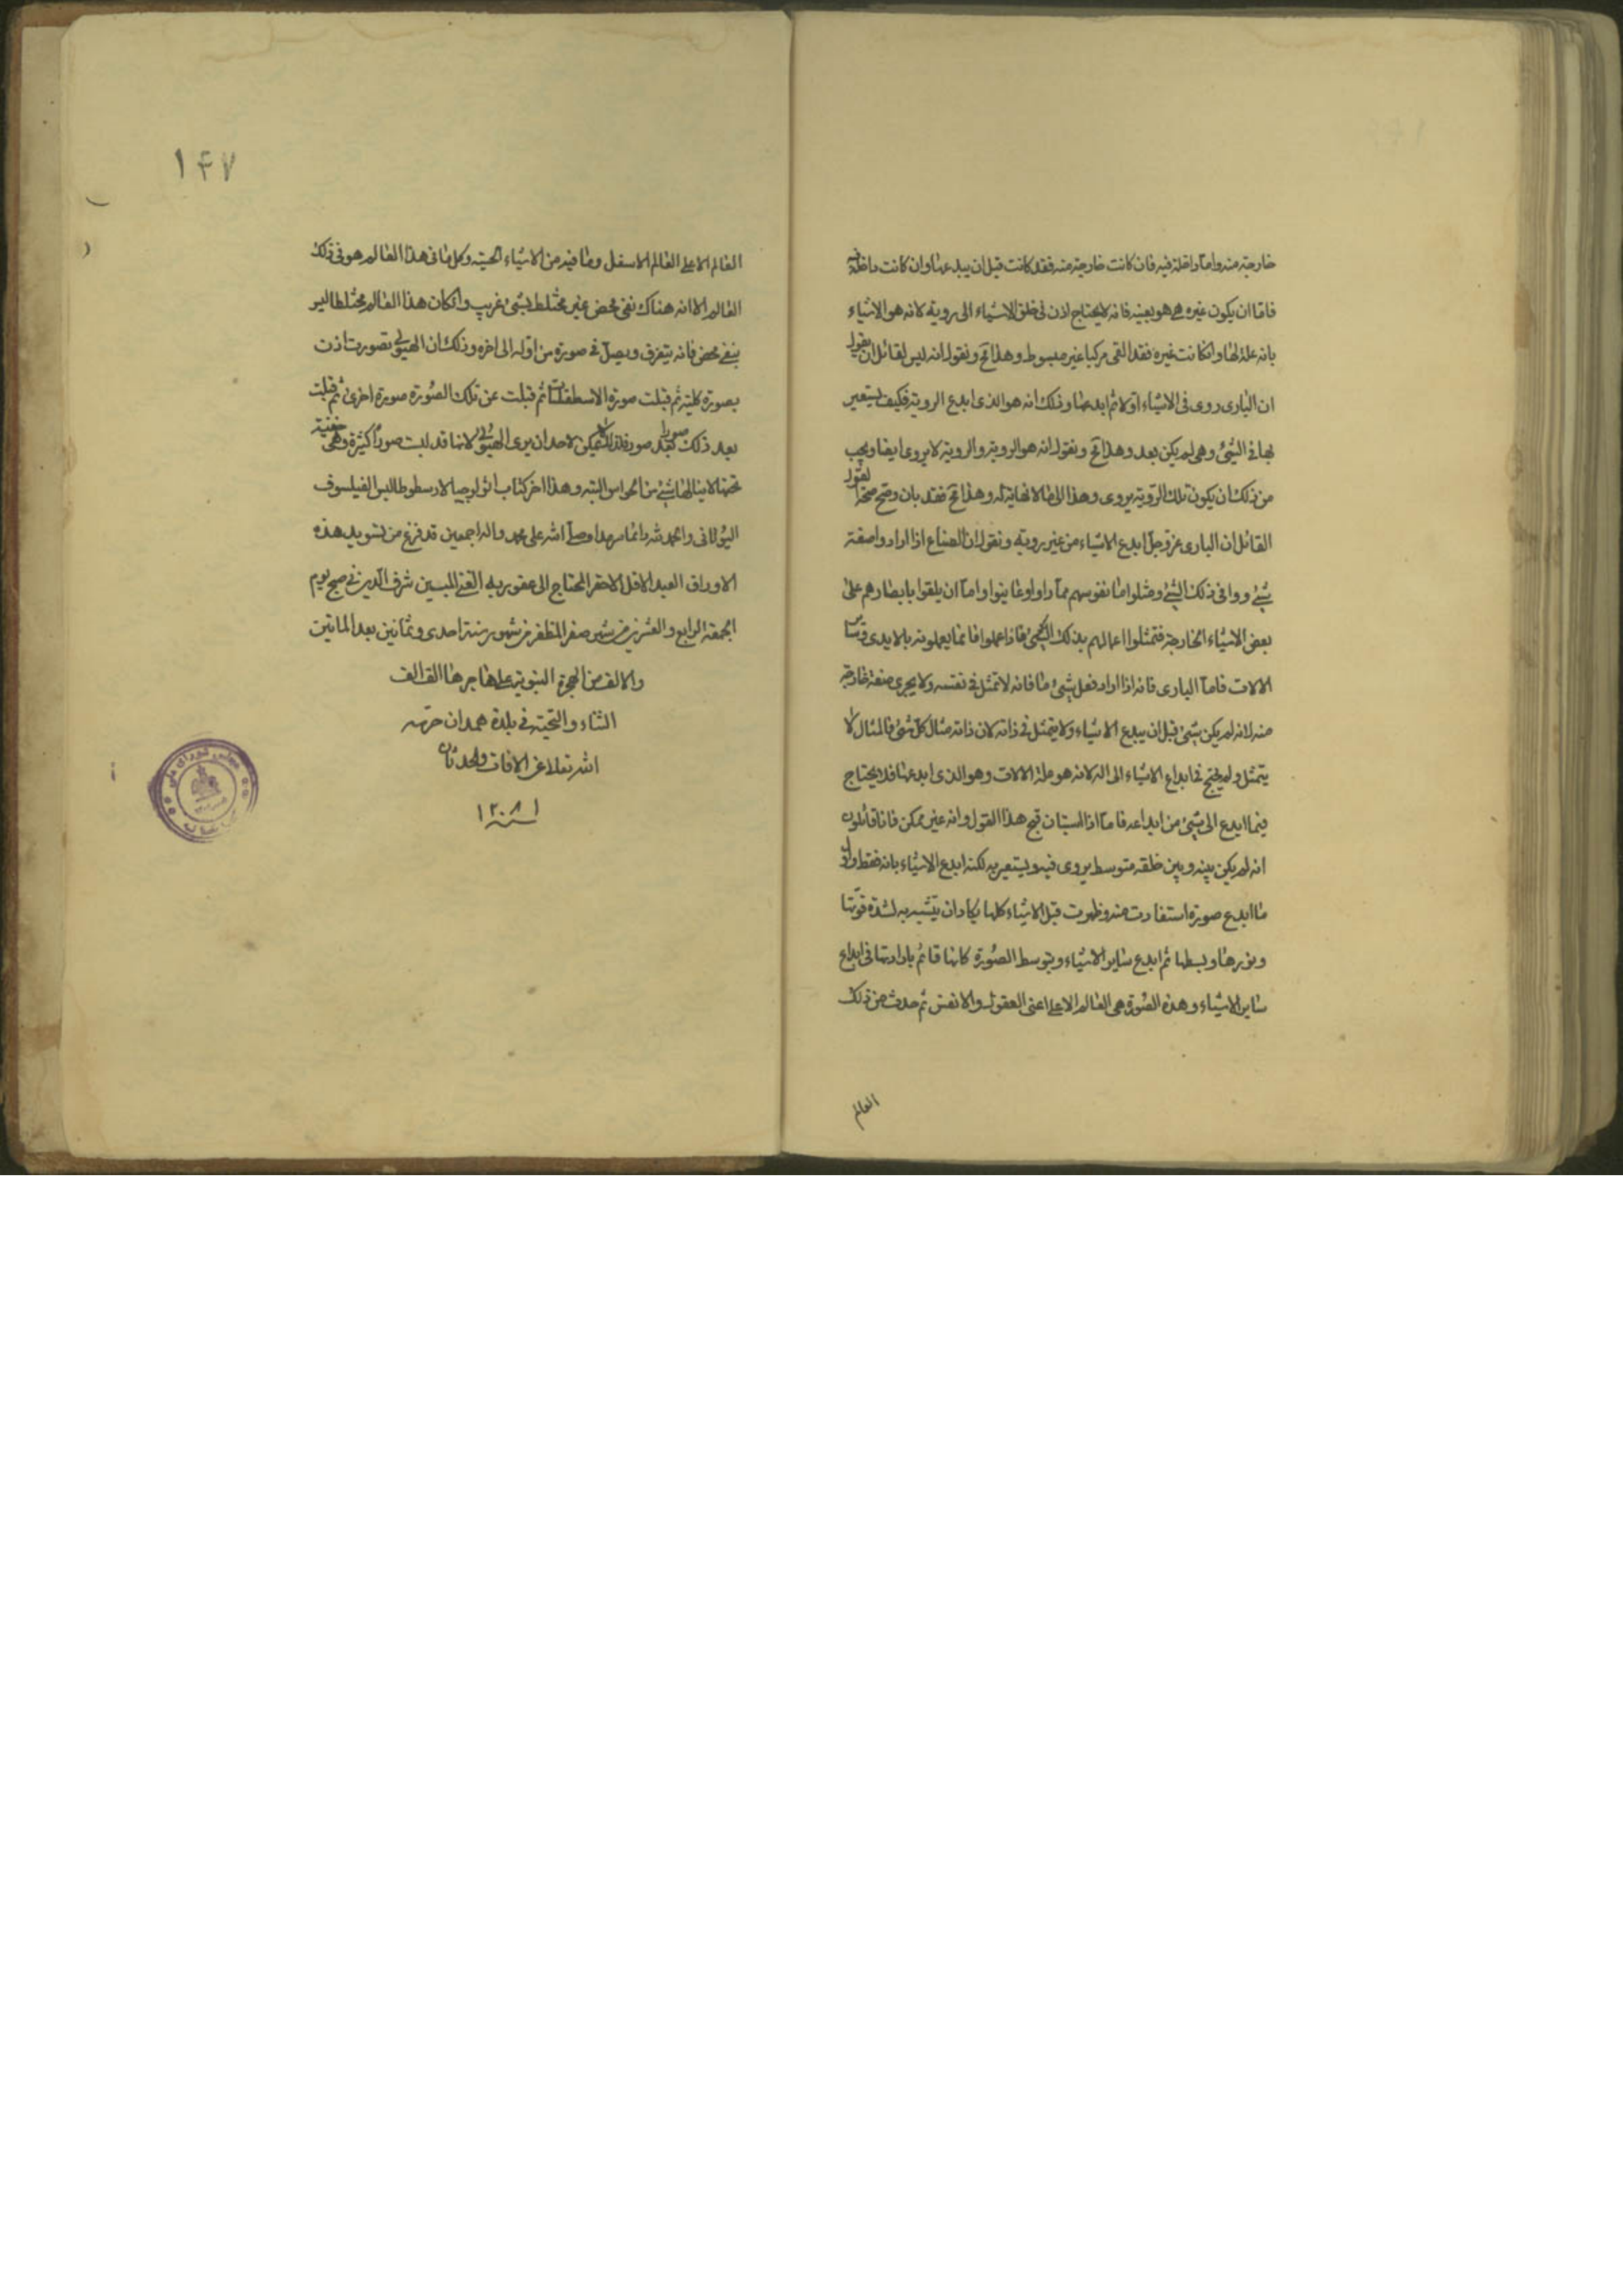 خارجة منه واما داخلة فيه فان كانت خارجة منه فقد كانت قبل ان يبدعها وان كانت داخلة فيه
فاما ان يكون غيره هى هو بعينه فانه لا يحتاج اذن فى خلق الاشياء الى روية لانه هو الاشياء
بانه علة لها وان كانت غيره فقد القى مركبا غير مبسوط وهذا مح ونقول انه ليس لقائل ان يقول
ان البارى روى فى الاشياء اولا ثم ابدعها وذلك انه هو الذى ابدع الروية فكيف يستعين
بها فى الشئ وهى لم يكن بعد وهذا مح ونقول انه هو الروية والروية لا يروى ايضا ويجب
من ذلك ان يكون تلك الروية يروى وهذا الى ما لا نهاية له وهذا مح فقد بان وصح صحة لقول
القائل ان البارى عز وجل ابدع الاشياء من غير روية ونقول ان الصناع اذا ارادوا صفة
شئ رووا فى ذلك الشئ ومثلوا ما نفوسهم مما راوا وعاينوا واما ان يلقوا بابصارهم على
بعض الاشياء الخارجة فتمثلوا اعمالهم بذلك الشئ فاذا عملوا فانما يعملونه بالايدى وسائر
الالات فاما البارى فانه اذا اراد فعل شئ ما فانه لا تمثل فى نفسه ولا يجرى صنعة خارجة
منه لانه لم يكن شئ قبل ان يبدع الاشياء ولا يتمثل فى ذاته لان ذاته مثال كل شئ فالمثال لا
يتمثل ولم يحتج فى ابداع الاشياء الى الة لانه هو علة الالات وهو الذى ابدعها فلا يحتاج
فيما ابدع الى شئ من ابداعه فاما اذا استبان قبح هذا القول وانه غير ممكن فانا قائلون
انه لم يكن بينه وبين خلقه متوسط يروى فيه ويستعين به لكنه ابدع الاشياء بانه فقط واول
ما ابدع صورة استفادت منه وظهرت قبل الاشياء كلها يكاد ان يتشبه به لشدة قوتها
ونورها وبسطها ثم ابدع ساير الاشياء وبتوسط الصورة كانها قائم بارادتها فى ابداع
ساير الاشياء وهذه الصورة هى العالم الاعلى اعنى العقول والانفس ثم حدث من ذلك
العالم
١٤٧
العالم الاعلى العالم الاسفل وما فيه من الاشياء الحسية وكل ما فى هذا العالم هو فى ذلك
العالم الا انه هناك نقى محض غير مختلط بشئ غريب وان كان هذا العالم مختلطا ليس
بنقى محض فانه يتفرق ويصل فى صورة من اوله الى اخره وذلك ان الهيولى تصورت اذن
بصورة كلية ثم قبلت صورة الاسطقسات ثم قبلت عن تلك الصورة صورة اخرى ثم قبلت
بعد ذلك صورا بعد صور فلذلك لا يمكن لاحد ان يرى الهيولى لانها قد لبست صورا كثيرة وهى خفية
تحتها لا ينالها شئ من الحواس البتة وهذا اخر كتاب اثولوجيا لارسطوطاليس الفيلسوف
اليونانى والحمد لله دائما سرمدا وصلى الله على محمد واله اجمعين قد فرغ من تسويد هذه
الاوراق العبد الاقل الاحقر المحتاج الى عفو ربه الغنى المبين شرف الدين فى صبح يوم
الجمعة الرابع والعشرين من شهر صفر المظفر من شهور سنة احدى وثمانين بعد الماتين
والالف من الهجرة النبوية على هاجرها الف الف
الثناء والتحية فى بلدة همدان حرسه
الله تعالى عن الافات والحدثان
سنة ١٢٨١